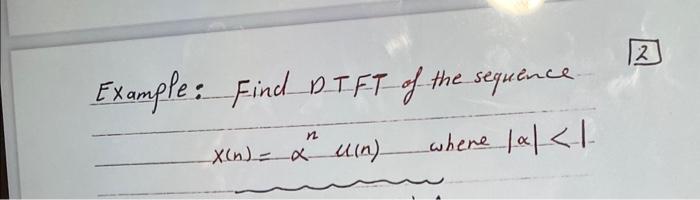 2
Example: Find DTFT of the sequence
x(n) = αⁿ u(n) where |α| < 1